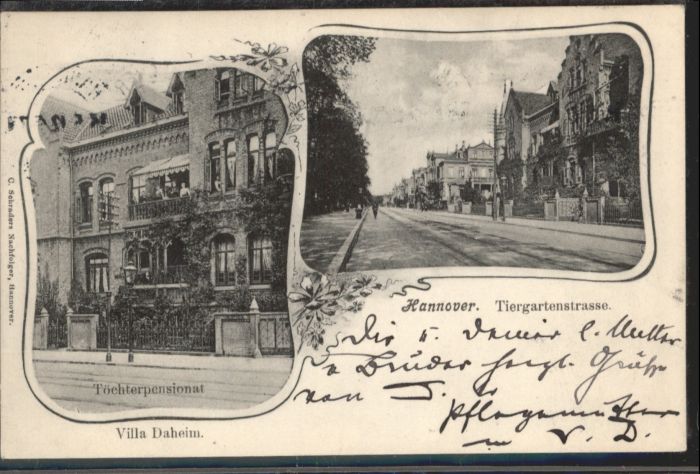 C. Schraders Nachfolger, Hannover.
Töchterpensionat
Villa Daheim.
Hannover. Tiergartenstrasse.
Dir u. Deiner l. Mutter
u Bruder herzl. Grüße
von D. lb
Pflegemutter
u V. D.